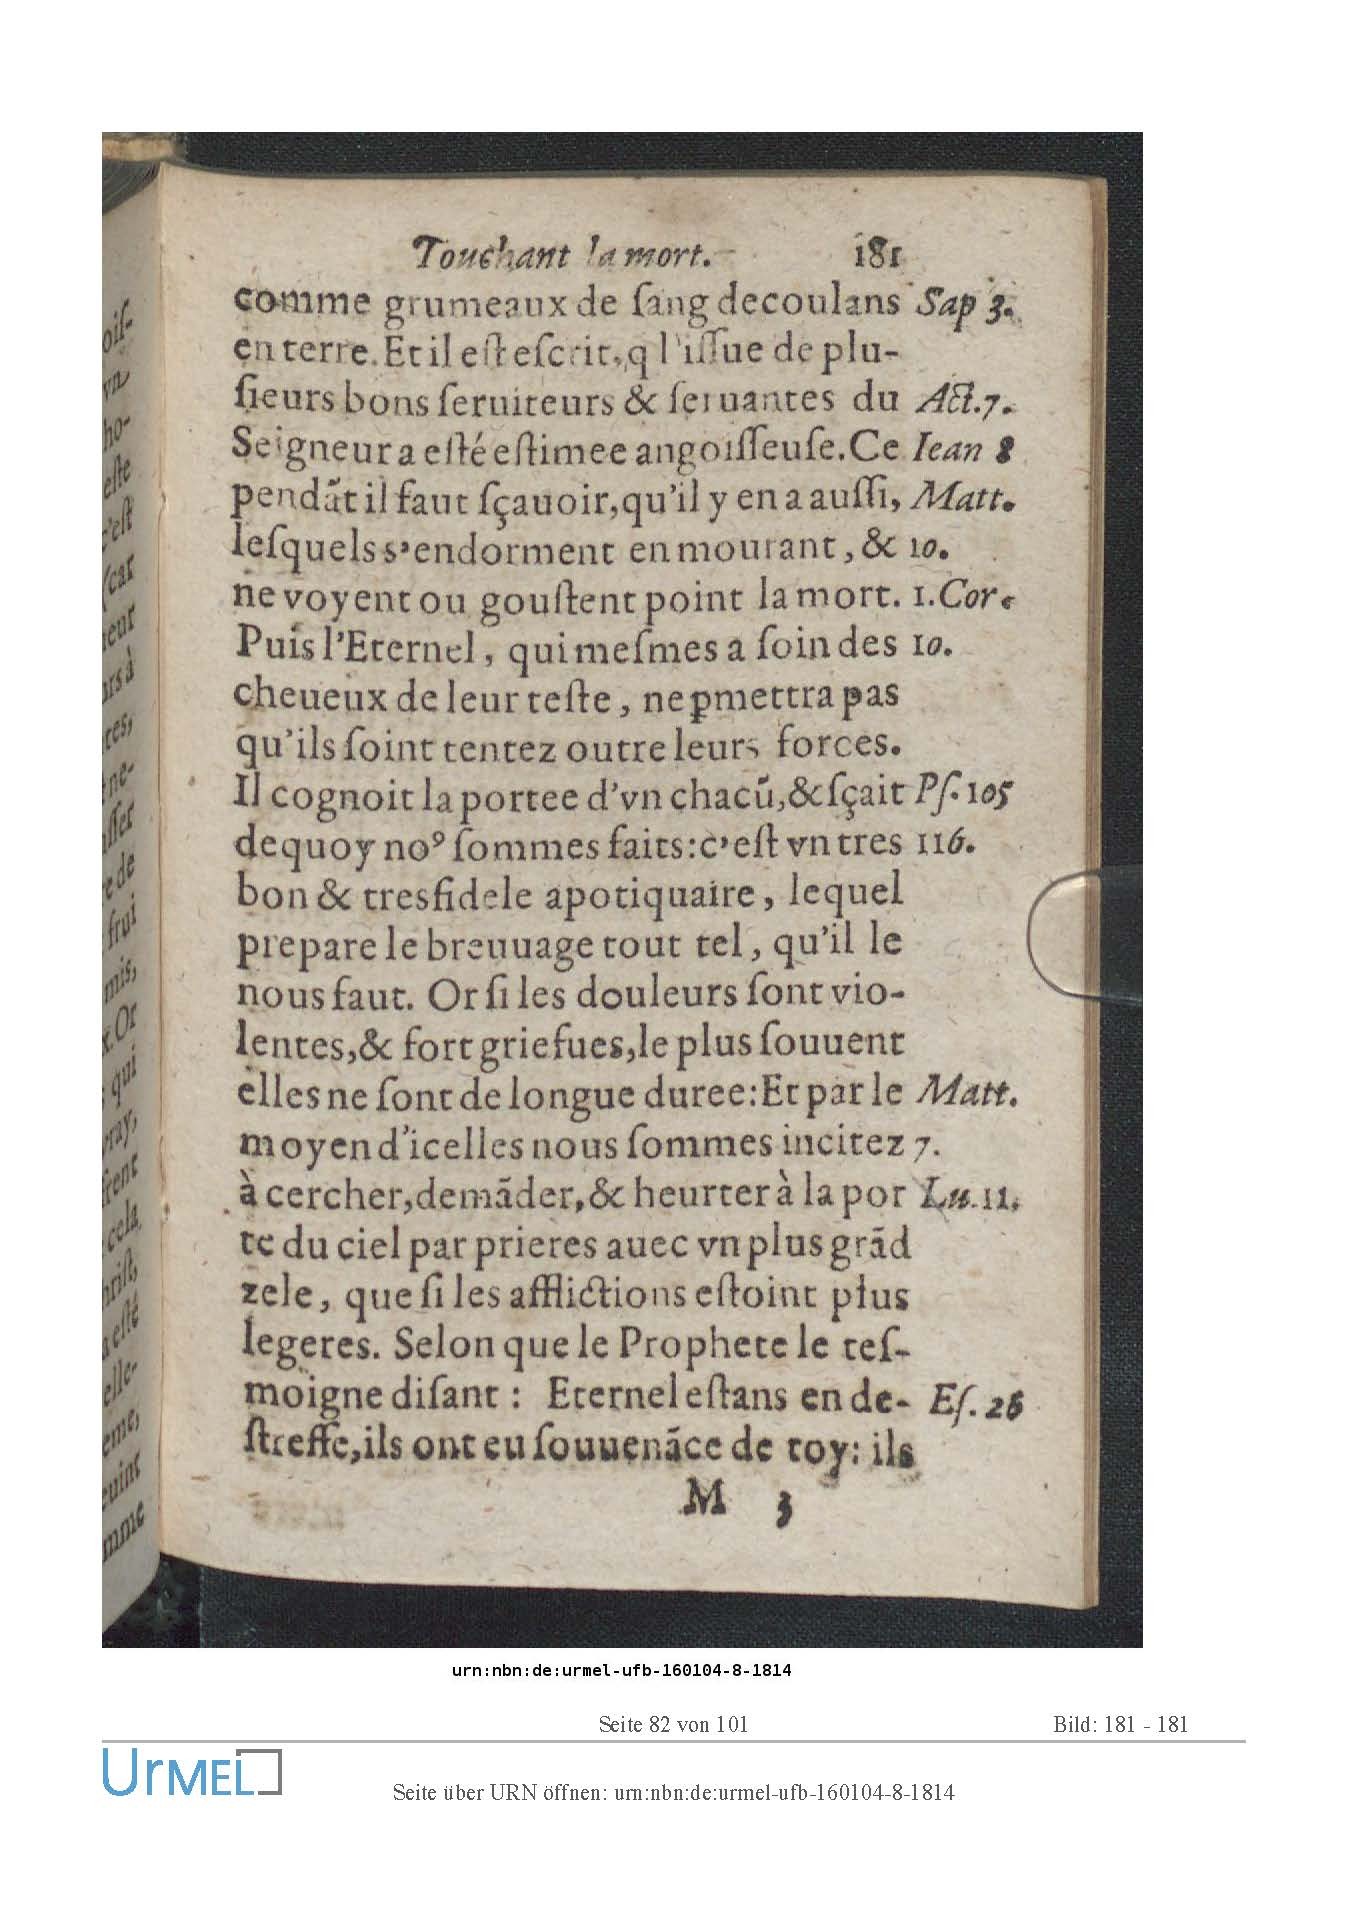 Touchant la mort. 181
comme grumeaux de ſang decoulans Sap 3.
en terre. Et il eſt eſcrit, q l'iſſue de plu-
ſieurs bons ſeruiteurs & ſeruantes du Act.7.
Seigneur a eſté eſtimee angoiſſeuſe. Ce Iean 8
pendãt il faut ſçauoir, qu'il y en a auſſi, Matt.
leſquels s'endorment en mourant, & 10.
ne voyent ou gouſtent point la mort. 1. Cor.
Puis l'Eternel, qui meſmes a ſoin des 10.
cheueux de leur teſte, ne ꝑmettra pas
qu'ils ſoint tentez outre leurs forces.
Il cognoit la portee d'vn chacũ, & ſçait Pſ. 105
dequoy noꝰ ſommes faits: c'eſt vn tres 116.
bon & tresfidele apotiquaire, lequel
prepare le breuuage tout tel, qu'il le
nous faut. Or ſi les douleurs ſont vio-
lentes, & fort griefues, le plus ſouuent
elles ne ſont de longue duree: Et par le Matt.
moyen d'icelles nous ſommes incitez 7.
à cercher, demãder, & heurter à la por Lu. 11.
te du ciel par prieres auec vn plus grãd
zele, que ſi les afflictions eſtoint plus
legeres. Selon que le Prophete le teſ-
moigne diſant : Eternel eſtans en de- Eſ. 26
ſtreſſe, ils ont eu ſouuenãce de toy: ils
M 3
oiſ-
vn
ho-
eſte
c'eſt
(car
ieur
rs à
res,
ne-
e de
frui
mis,
x. Or
qui
ray,
cela
eſté
elle-
eme,
mme
urn:nbn:de:urmel-ufb-160104-8-1814
Seite 82 von 101 Bild: 181 - 181
UrMEL
Seite über URN öffnen: urn:nbn:de:urmel-ufb-160104-8-1814